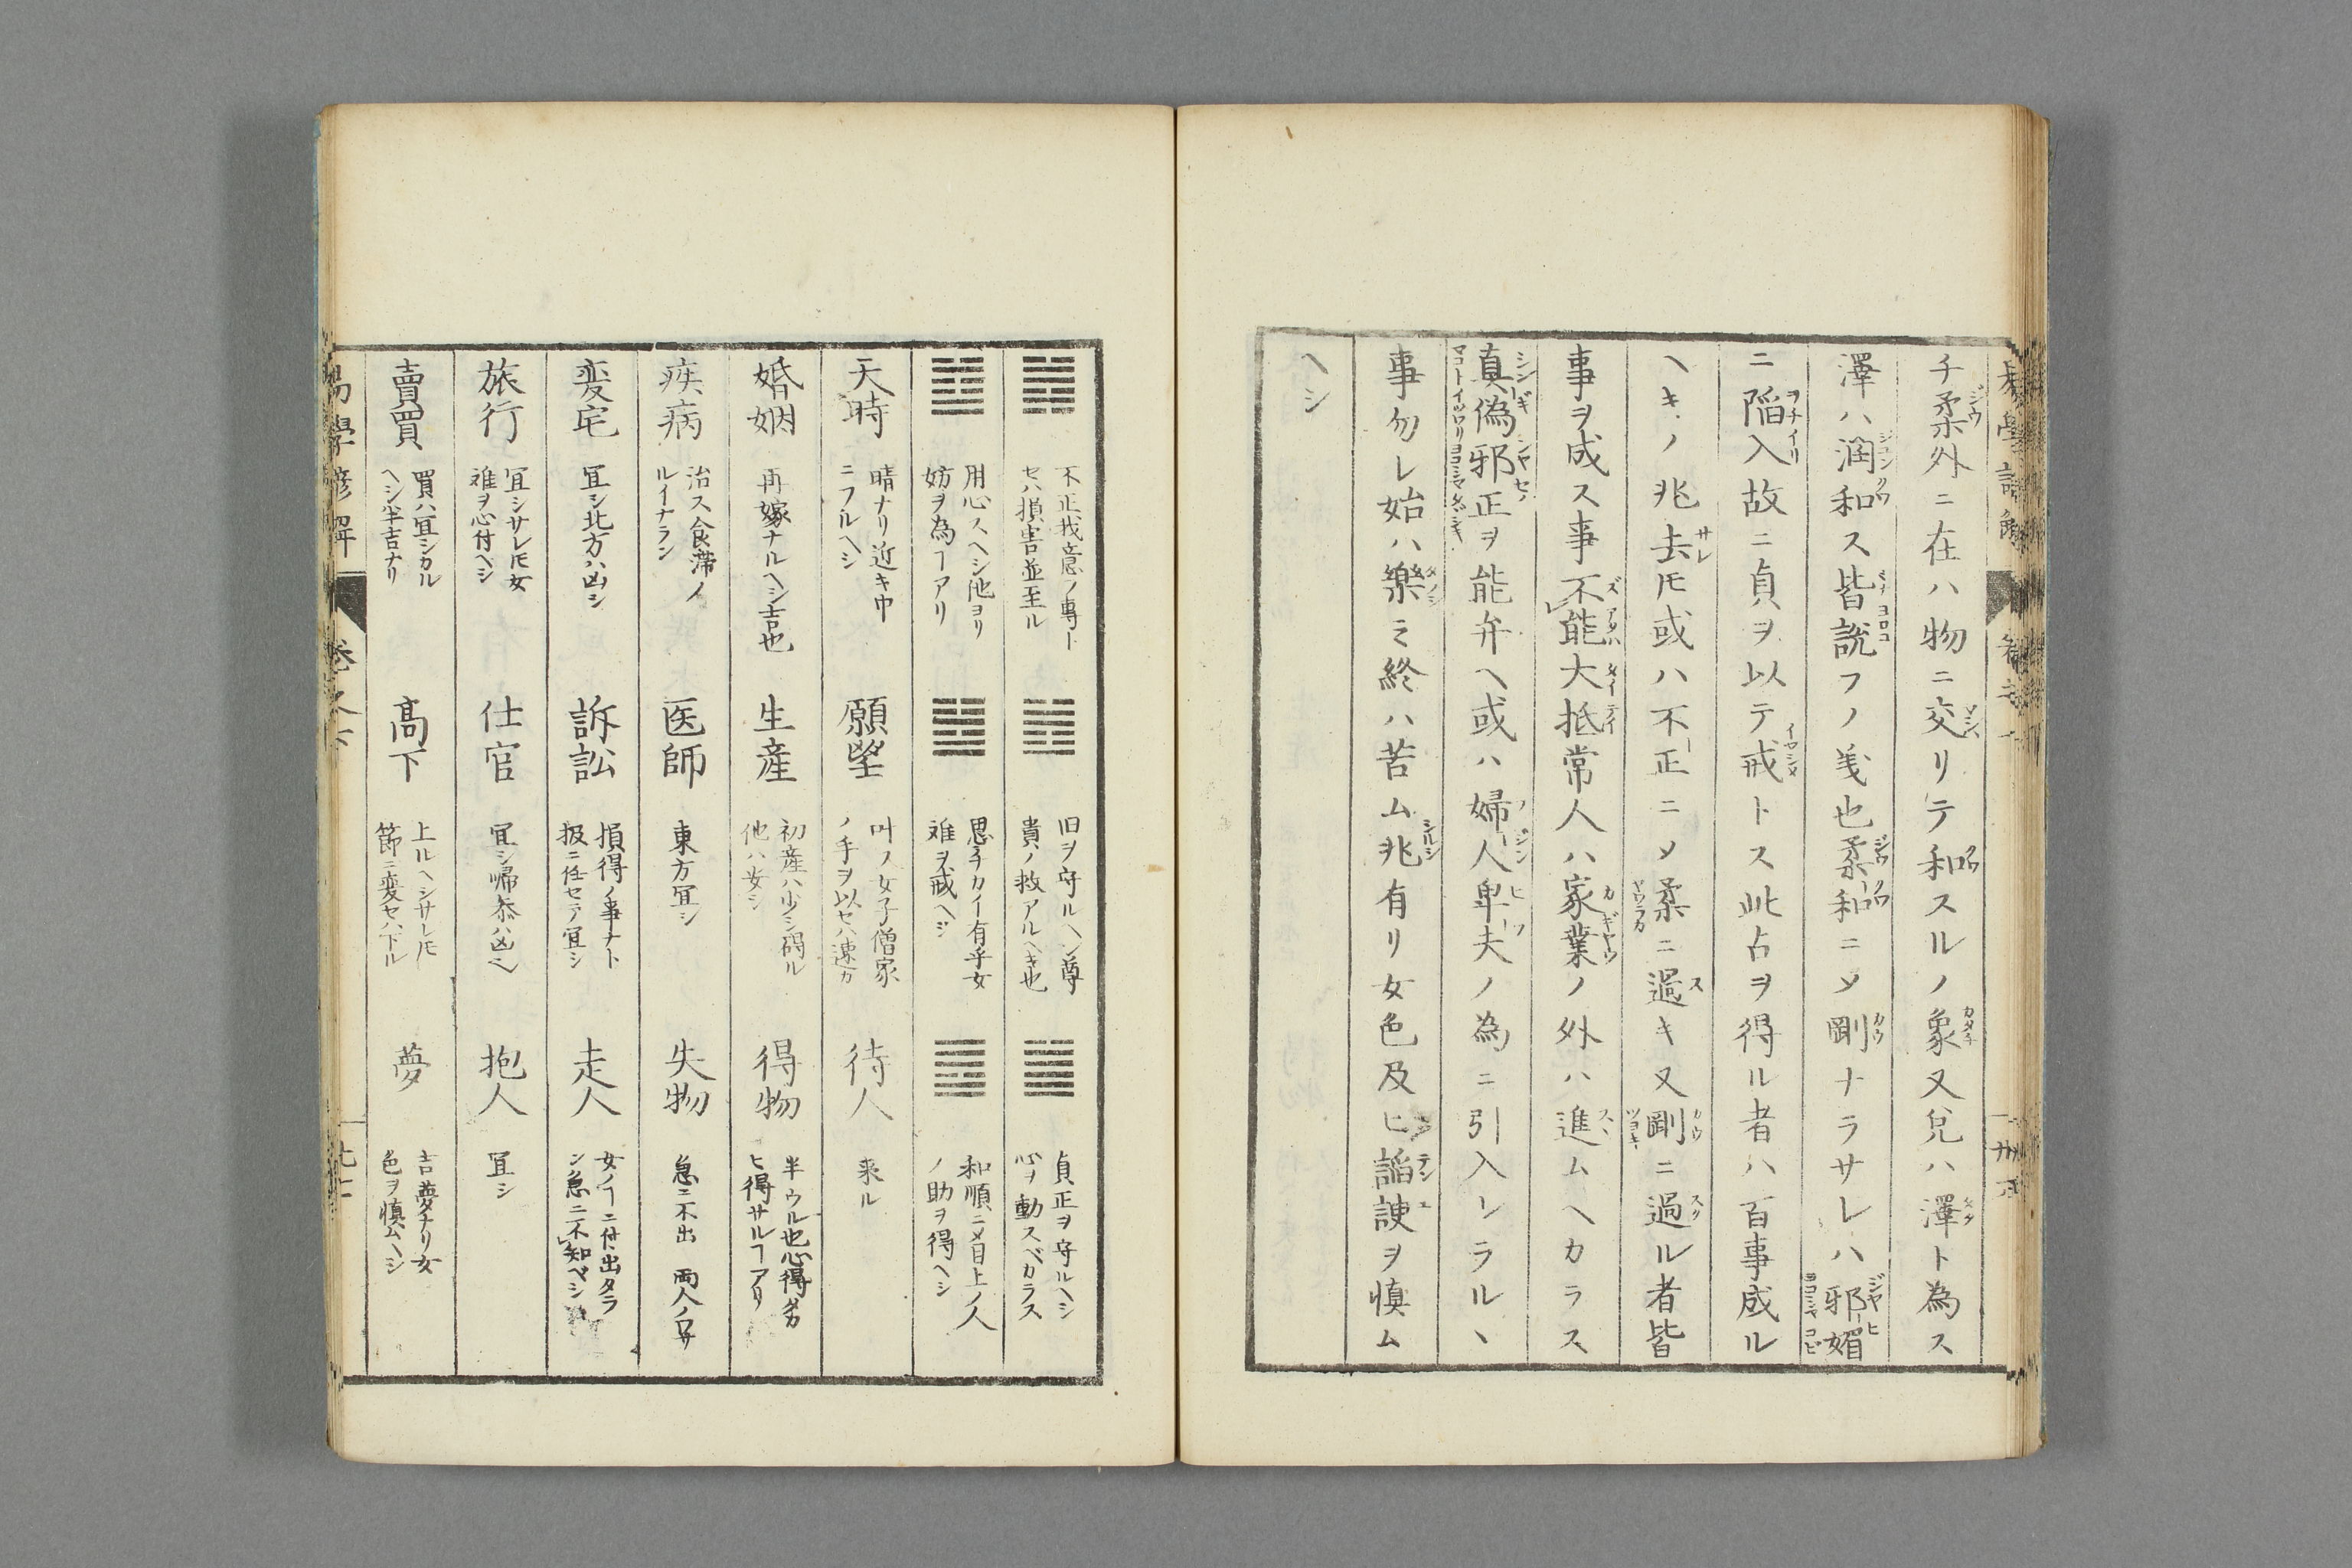 チ柔外ニ在ハ物ニ交リテ和スルノ象又兌ハ澤ト為ス
澤ハ潤和ス皆説フノ義也柔和ニメ剛ナラサレハ邪媚
ニ陥入故ニ貞ヲ以テ戒トス此占ヲ得ル者ハ百事成ル
ヘキノ兆去𪜈或ハ不正ニメ柔ニ過キ又剛ニ過ル者皆
事ヲ成ス事不能大抵常人ハ家業ノ外ハ進ムヘカラス
真偽邪正ヲ能弁ヘ或ハ婦人卑夫ノ為ニ引入レラルヽ
事勿レ始ハ樂ミ終ハ苦ム兆有リ女色及ヒ諂諛ヲ慎ム
ヘシ
不正我意ノ專ト
セハ損害並至ル
旧ヲ守ルヘシ尊
貴ノ救アルヘキ也
貞正ヲ守ルヘシ
心ヲ動スベカラス
用心スヘシ他ヨリ
妨ヲ為ヿアリ
思チカイ有乎女
难ヲ戒ヘシ
和順ニメ目上ノ人
ノ助ヲ得ヘシ
天時
晴ナリ近キ中
ニフルヘシ
願望
叶ノ女子僧家
ノ手ヲ以セハ速カ
待人
来ル
婚姻
再嫁ナルヘシ吉也
生産
初産ハ少シ碍ル
他ハ安シ
得物
半ウル也心得タカ
ヒ得サルヿアリ
疾病
治ス食滞ノ
ルイナラン
医師
東方冝シ
失物
急ニ不出 両人ノワサ
変宅
冝シ北方ハ凶シ
訴訟
損得ノ事ナト
扱ニ任セテ冝シ
走人
女ノヿニ付出タラ
ン急ニ不知ベシ
旅行
冝シサレ𪜈女
难ヲ心付ヘシ
仕官
冝シ帰参ハ凶シ
抱人
冝シ
賣買
買ハ冝シカル
ヘシ半吉ナリ
高下
上ルヘシサレ𪜈
節ニ変セハ下ル
夢
吉夢ナリ女
色ヲ慎ムヘシ
易學諺解
巻之下